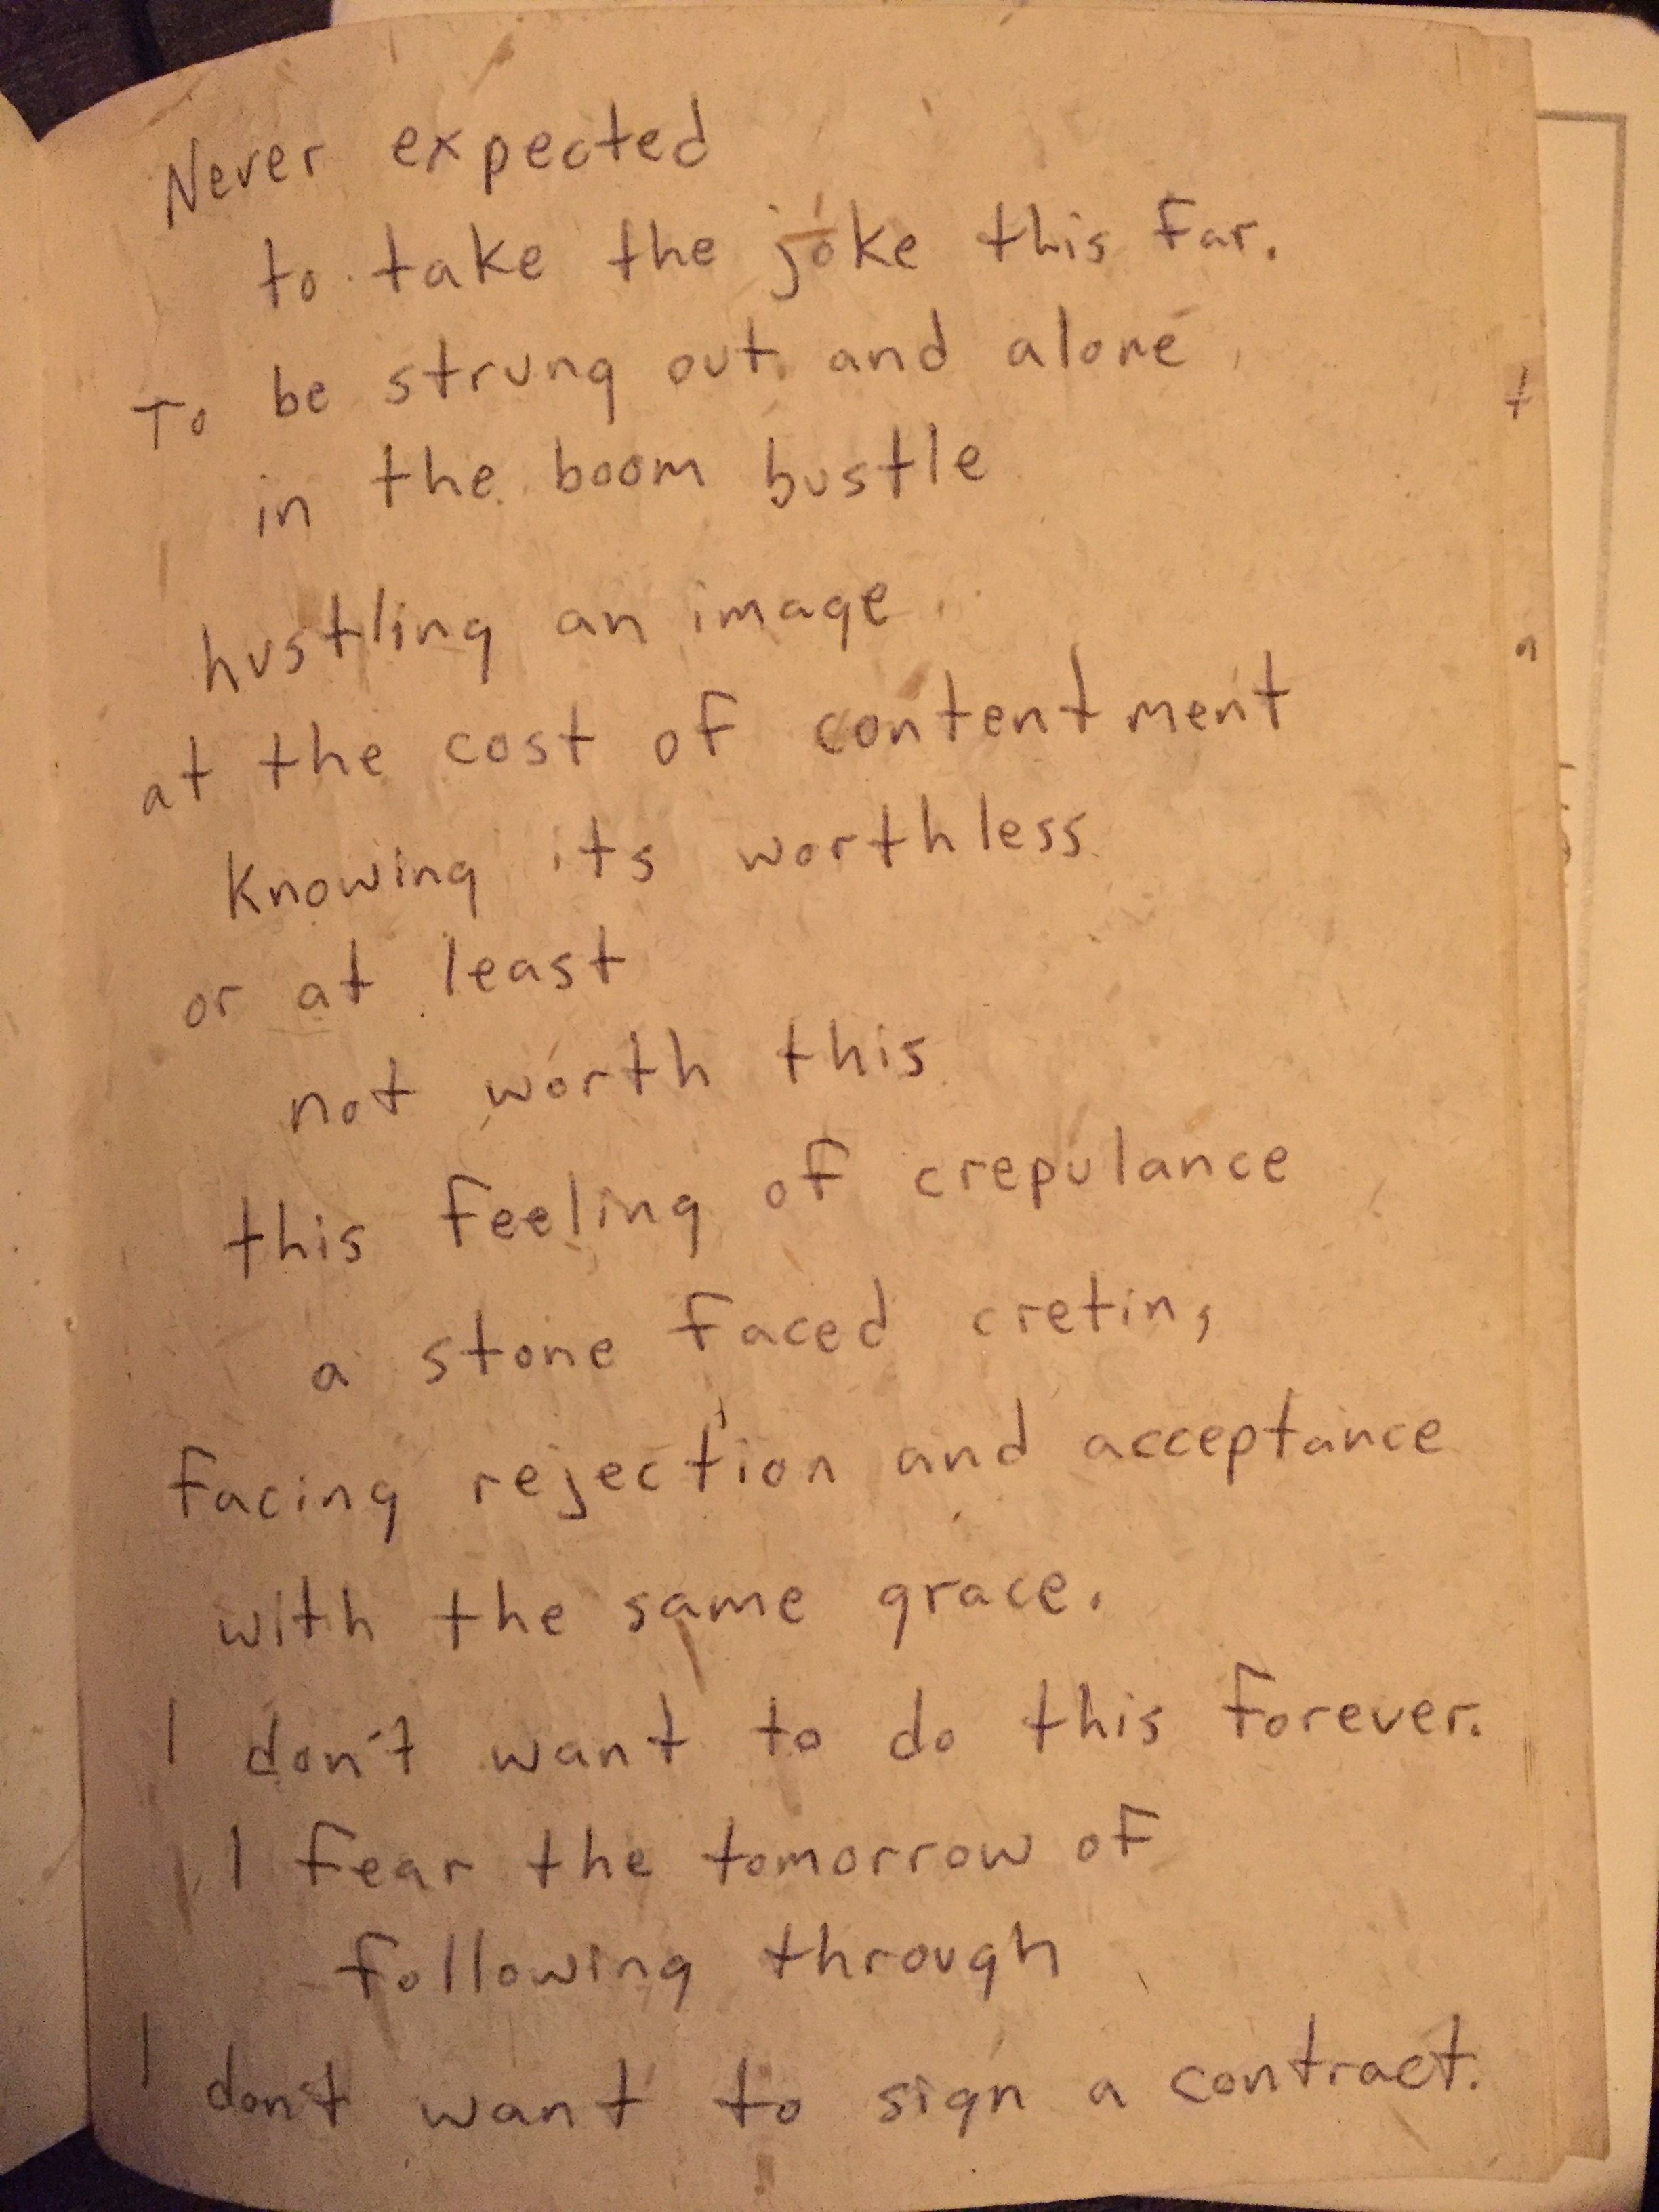 Never expected
to take the joke this far.
To be strung out and alone
in the boom bustle
hustling an image
at the cost of contentment
Knowing its worthless
or at least
not worth this
this feeling of crepulance
a stone faced cretin,
facing rejection and acceptance
with the same grace.
I don't want to do this forever.
I fear the tomorrow of
following through
I don't want to sign a contract.